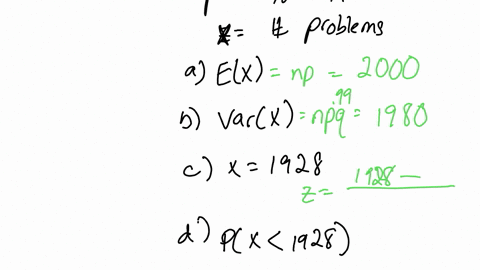 x = # problems
a) E(x) = np = 2000
b) Var(x) = npq = 1980
.99
c) x = 1928
z = 1928 —
d) P(x < 1928)